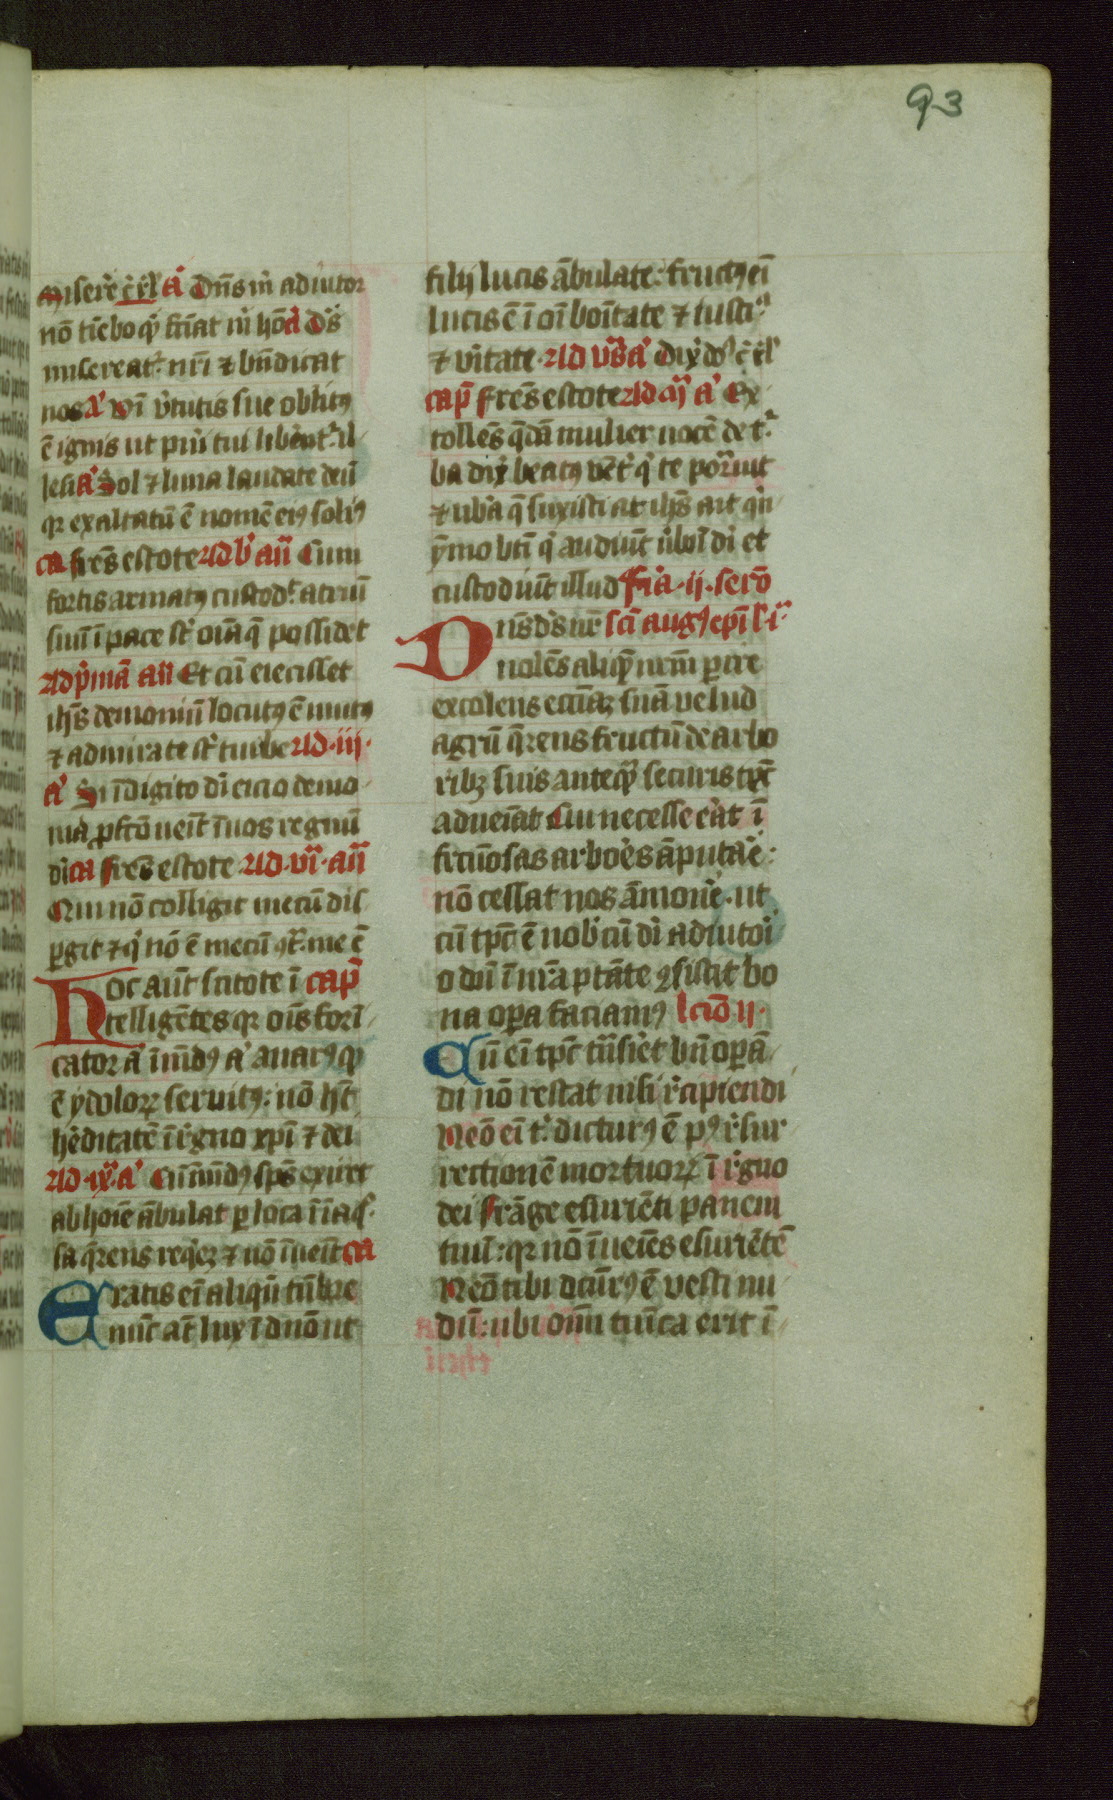 93
Misere᷒ c̄ r̄l a̾ Dn̄s m̄ adiutor
nō timebo qͥ faciat m̄ hō a̾ Ds̄
misereat᷑ nr̄i ⁊ bn̄dicat
nos a̾ vi v̾tutis sue oblitꝯ
ē ignis ut pu̾i tui libe᷒ut᷑ il
lesi a̾ Sol ⁊ luna laudate deū
qꝛ exaltatū ē nomē eiꝯ soliꝯ
ca fr̄es estote Ad b̾ an̄ Cum
fortis armatꝯ custod᷑ atriū
suū ī pace st̄ oīa q̄ possidet
Ad pͥmā an̄ Et cū eiecisset
ih̄s demoniū locutꝯ ē mutꝯ
⁊ admirate st̄ turbe Ad·iij·
a̾ Si ī digito di eicio demo
nia ꝓfcō ueīt ī uos regnū
di ca fr̄es estote Ad·vi·an̄
Qui nō colligit mecū dis
ꝑgit ⁊ qͥ nō ē mecū ꝯͭ me ē
Hoc aūt scitote ī cap̄
telligētes qꝛ oīs forī
cator a̾ īmūdꝯ a̾ auarꝯ qͩ
ē ydoloꝝ seruitꝯ: nō hꝫ
he᷒ditatē ī rͤgno xp̄i ⁊ dei
Ad·ix·a̾ Cū īmūdꝯ sps̄ exiret
ab hoīe ābulat ꝑ loca īnaqͦ
sa q̄rens reqͥeꝫ ⁊ nō īueīt ca
Eratis eī aliqn̄ tn̄bre
nūc aūt lux ī dn̄o ut
filij lucis ābulate: fructꝯ eī
lucis ē ī oī boītate ⁊ iustic̾
⁊ vͥtate·Ad vs̄ a̾ Dix ds̄ c̄ r̄l
cap̄ fr̄es estote Ad m̄ a̾ Ex
tollēs q̄dā mulier uocē de t᷑
ba dix beatꝯ uēt᷑ qͥ te portauit
⁊ ub̾a q̄ suxisti at ih̄s ait qͥn
ymo bti qͥ audiūt ūbū di et
custodiūt illud Fr̄ia·ij·serō
Dn̄s ds̄ nr̄ sc̄i augꝯ epī l̾·i·
nolēs aliqͥ nr̄m ꝑire
excolens ecciāꝫ suā velud
agrū q̄rens fructū de arbo
ribꝫ suis anteqͣ securis tp̄c
adueīat Cui necesse er̄at ī
fructuosas arboes āputa᷒e:
nō cessat nos āmone᷒·ut
cū tp̄c ē uob̾ cū di adiutoi
o dū ī nr̄a ptāte ꝯsistit bo
na oꝑa faciamꝯ lc̄io ij·
Cū eī tp̄c trāsie᷒t bn̄ oꝑā
di nō restat nisi rͤcipiendi
Neō eī t᷑ dicturꝯ ē pꝯ rͤsur
rectionē mortuoꝝ ī rͤgno
dei frāge esuriēti panem
tuū: qꝛ nō īueies esuriētē
Neō tibi dictūrꝯ ē vesti nu
dū: ubi oīm tunica erit ī